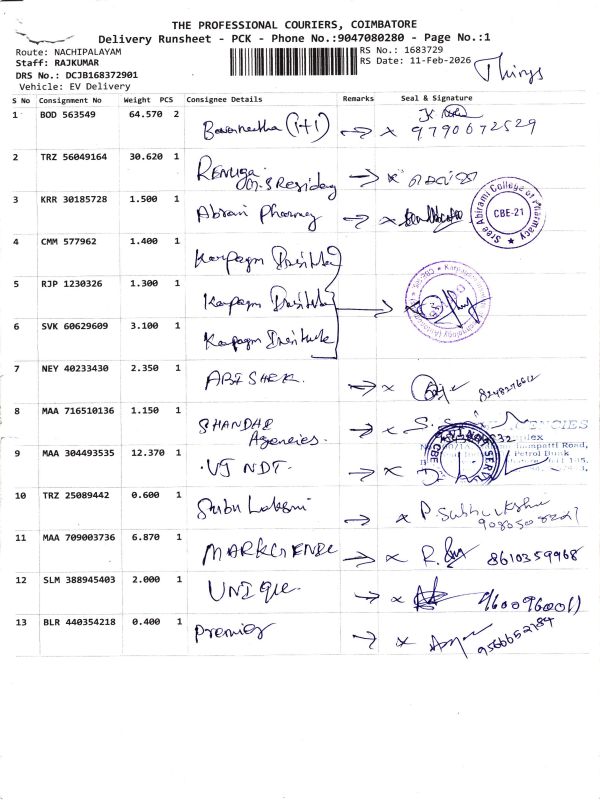 THE PROFESSIONAL COURIERS, COIMBATORE
Delivery Runsheet - PCK - Phone No.:9047080280 - Page No.:1
Route: NACHIPALAYAM
Staff: RAJKUMAR
DRS No.: DCJB168372901
Vehicle: EV Delivery
RS No.: 1683729
RS Date: 11-Feb-2026
Things
S No Consignment No Weight PCS Consignee Details Remarks Seal & Signature
1 BOD 563549 64.570 2 (1+1) x 9790672529
2 TRZ 56049164 30.620 1 RENUGA x
3 KRR 30185728 1.500 1 Abrami Pharmacy x
Sree Abirami College of Pharmacy CBE-21
4 CMM 577962 1.400 1 Karpagam Institute
5 RJP 1230326 1.300 1 Karpagam Institute
6 SVK 60629609 3.100 1 Karpagam Institute
7 NEY 40233430 2.350 1 ABISHEK x
8 MAA 716510136 1.150 1 Agencies. x
9 MAA 304493535 12.370 1 VJ NDT. x
Petrol Bunk
10 TRZ 25089442 0.600 1 Subu Laksmi x
11 MAA 709003736 6.870 1 x 8610359968
12 SLM 388945403 2.000 1 UNIQue x
13 BLR 440354218 0.400 1 Premier x 9566652784